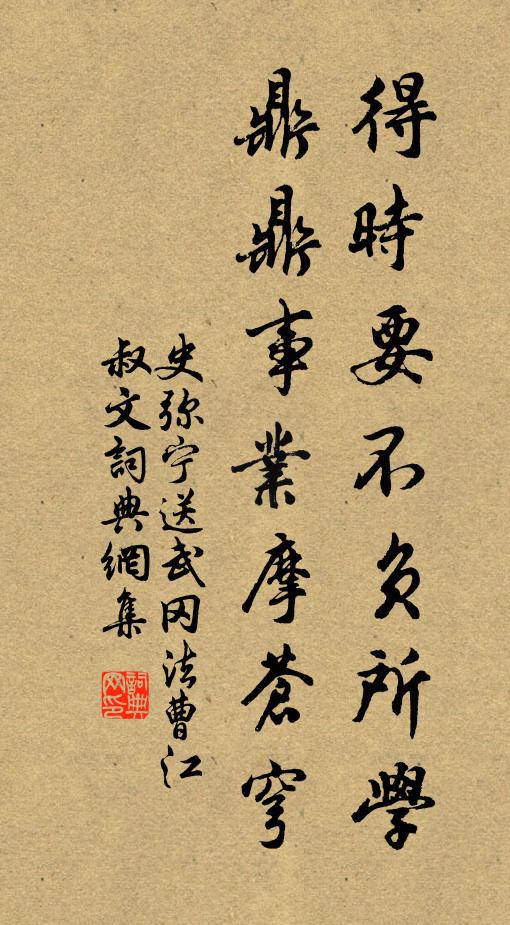 得時要不負所學
鼎鼎事業摩蒼穹
史弥宁送武冈法曹江
叔文詞典網集
詞典网印